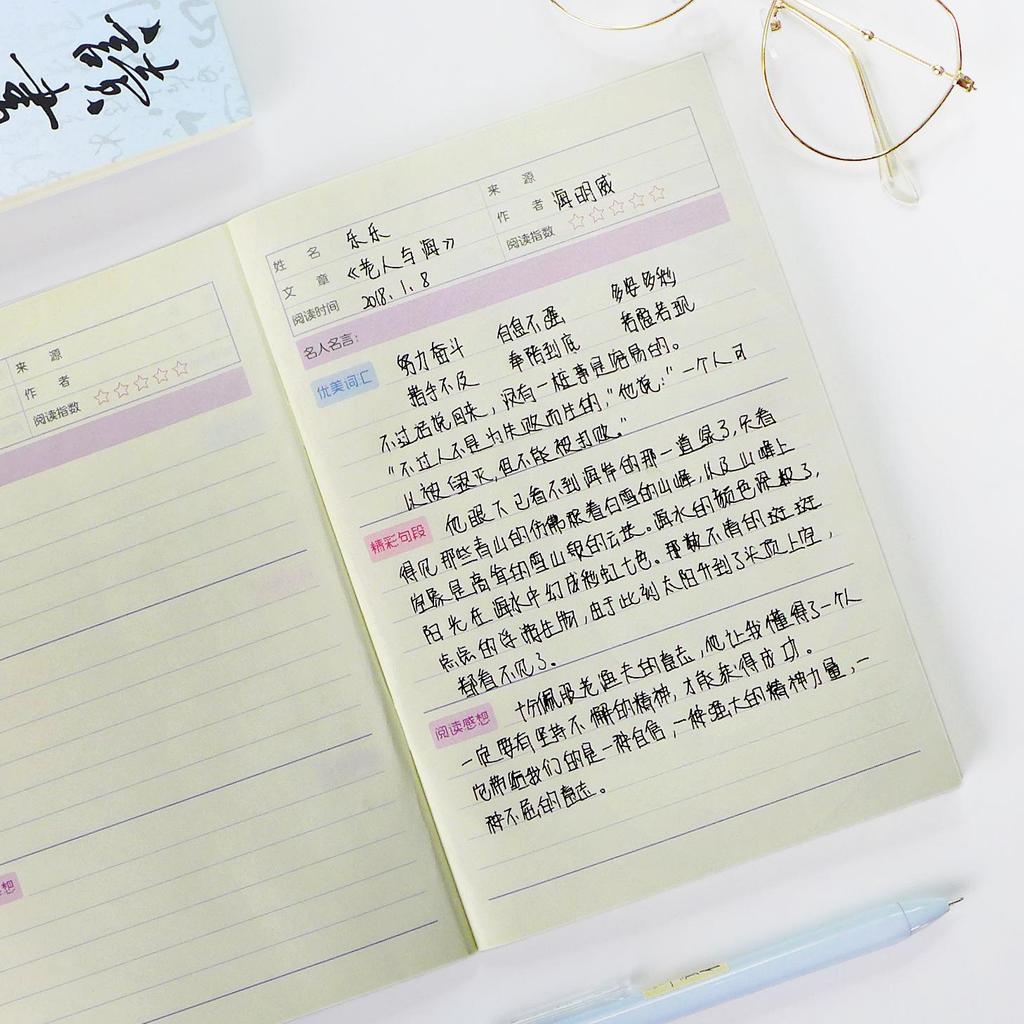 读书
来源
作者
阅读指数
想
姓名 乐乐
来源
文章 《老人与海》
作者 海明威
阅读时间 2018.1.8
阅读指数
名人名言:
优美词汇
努力奋斗 自息不强 多姿多彩
措手不及 奉陪到底 若隐若现
不过话说回来,没有一桩事是容易的。
“不过人不是为失败而生的,”他说:“一个人可
以被毁灭,但不能被打败。”
精彩句段
他眼下已看不到海岸的那一道绿了,只看
得见那些青山的仿佛积着白雪的山峰,以及山峰上
空象是高耸的雪山般的云块。海水的颜色深极了,
阳光在海水中幻成彩虹七色。那数不清的斑斑
点点的浮游生物,由于此刻太阳升到了头顶上空,
都看不见了。
阅读感想
十分佩服老渔夫的意志,他让我懂得了一个人
一定要有坚持不懈的精神,才能获得成功。
它带给我们的是一种自信,一种强大的精神力量,一
种不屈的意志。